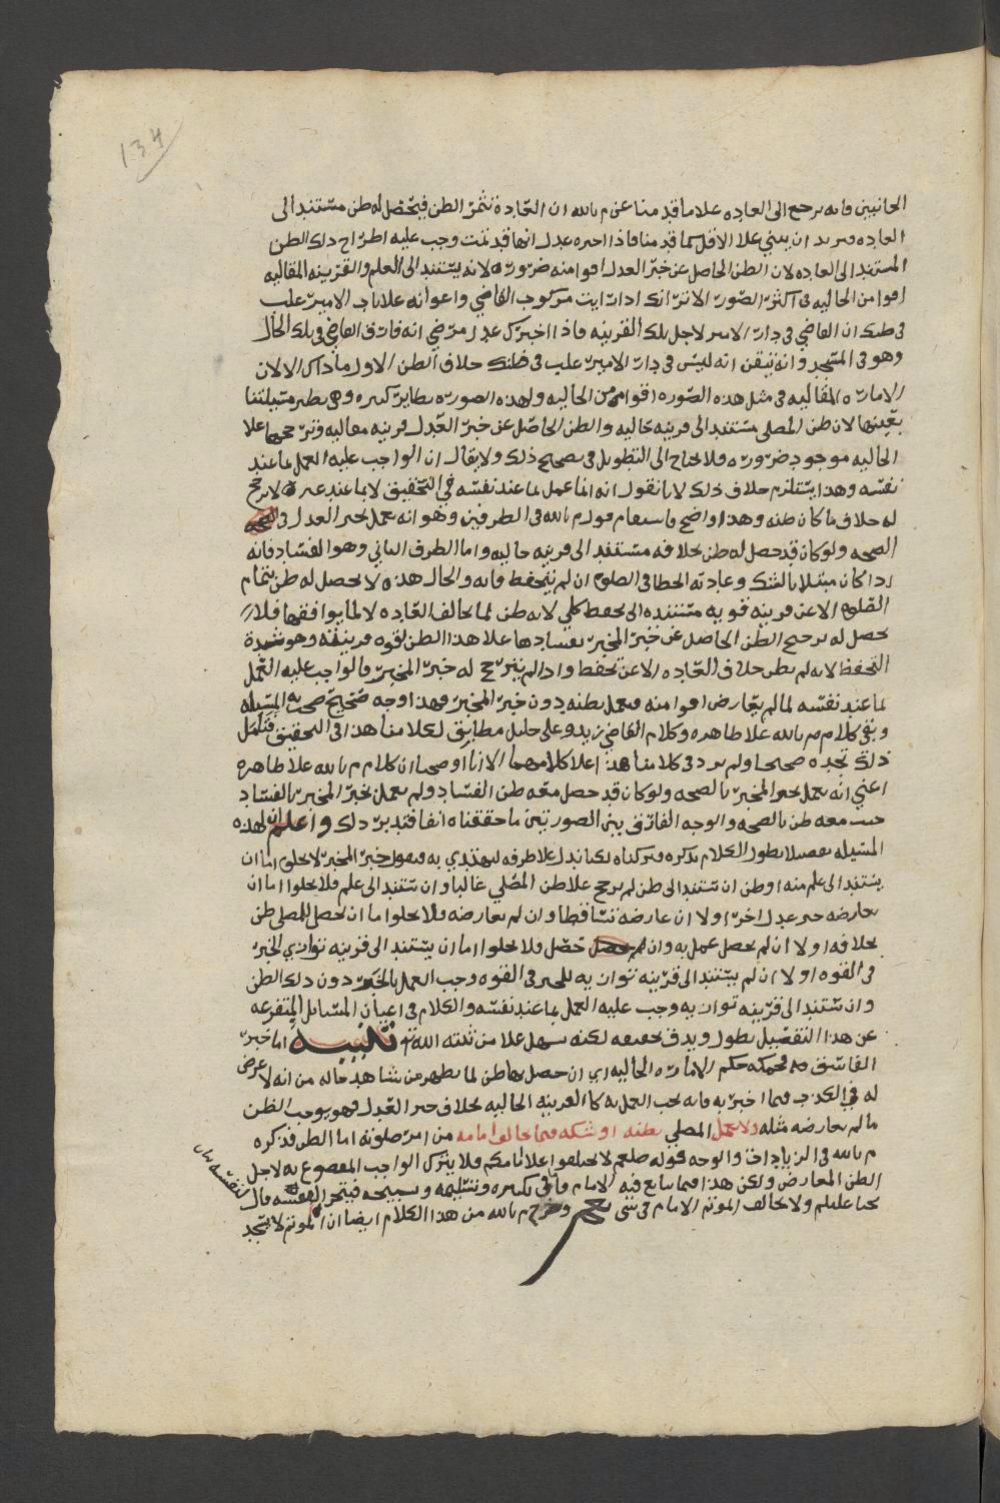 134
الجانبين فانه يرجع الى العاده علا ما قدمنا عن م بالله ان العادة تثمر الظن فيحصل له ظن مستند الى
العاده ويريد ان يبني علا الاقل كما قدمنا فاذا اخبره عدل انها قد تمت وجب عليه اطراح ذلك الظن
المستند الى العاده لان الظن الحاصل عن خبر العدل اقوا منه ضرورة لانه يستند الى العلم والقرينه المقاليه
اقوا من الحاليه في اكثر الصور الا ترا انك اذا رايت مركوب القاضي واعوانه علا باب الامير غلب
في ظنك ان القاضي في دار الامير لاجل تلك القرينه فاذا اخبرك عدل مرضي انه فارق القاضي في تلك الحال
وهو في المسجد وانه تيقن انه ليس في دار الامير غلب في ظنك خلاف الظن الاول وما ذاك الا لان
الامارة المقاليه في مثل هذه الصوره اقوا من الحاليه ولهذه الصوره نظاير كثيره وهي نظير مسئلتنا
بعينها لان ظن المصلي مستند الى قرينه حاليه والظن الحاصل عن خبر العدل قرينه مقاليه وترجيحها علا
الحاليه موجود ضرورة ولا يحتاج الى التطويل في تصحيح ذلك ولا يقال ان الواجب عليه العمل بما عند
نفسه وهذا يستلزم خلاف ذلك لانا نقول انه انما عمل بما عند نفسه في التحقيق لا بما عند غيره لا يرجح
له خلاف ما كان ظنه وهذا واضح فاستقام قول م بالله في الطرفين وهو انه يعمل بخبر العدل في
الصحه ولو كان قد حصل له ظن بخلافه مستند الى قرينه حاليه واما الطرف الثاني وهو الفساد فانه
اذا كان مبتلا بالشك وعادته الخطا في الصلوه ان لم يتحفظ فانه والحال هذه لا يحصل له ظن بتمام
الصلوه الا عن قرينه قويه مستنده الى تحفظ كلي لانه ظن لما يخالف العاده لا لما يوافقها فلا
يحصل له ترجيح الظن الحاصل عن خبر المخبر بفسادها علا هذا الظن لقوه قرينته وهو شدة
التحفظ لانه لم يظن خلاف العاده الا عن تحفظ واذا لم يترجح له خبر المخبر فالواجب عليه العمل
بما عند نفسه لما لم يعارض اقوا منه فيعمل بظنه دون خبر المخبر فهذا وجه صحيح صحت به المسئله
وبقي كلام م بالله علا ظاهره وكلام القاضي زيد وعلي خليل مطابق لكلامنا هذا في التحقيق فتامل
ذلك تجده صحيحا ولم نرد في كلامنا هذا علا كلامهما الا انا اوضحنا ان كلام م بالله علا ظاهره
اعني انه يعمل بخبر المخبر بالصحه ولو كان قد حصل معه ظن الفساد ولم يعمل بخبر المخبر بالفساد
حيث معه ظن بالصحه والوجه الفارق بين الصورتين ما حققناه انفا فتدبر ذلك واعلم ان لهذه
المسئله تفصيلا يطول الكلام بذكره وتركناه لكنا ندل علا طرفه ليهتدي به فنقول خبر المخبر لا يخلو اما ان
يستند الى علم منه او ظن ان استند الى ظن لم يرجح علا ظن المصلي غالبا وان استند الى علم فلا يخلوا اما ان
يعارضه خبر عدل اخر اولا ان عارضه تساقطا وان لم يعارضه فلا يخلوا اما ان يحصل للمصلي ظن
بخلافه اولا ان لم يحصل عمل به وان حصل فلا يخلوا اما ان يستند الى قرينه توازي الخبر
في القوه اولا ان لم يستند الى قرينه توازيه للخبر في القوه وجب العمل بالخبر دون ذلك الظن
وان استند الى قرينه توازيه وجب عليه العمل بما عند نفسه والكلام في اعيان المسائل المتفرعه
عن هذا التفصيل يطول ويدق تحقيقه لكنه يسهل علا من ثبته الله تنبيه اما خبر
الفاسق فحكمه حكم الامارة الحاليه اي ان حصل بها ظن لما يظهر من شاهد حاله من انه لا غرض
له في الكذب فيما اخبر به فانه يجب العمل به كالقرينه الحاليه بخلاف خبر العدل فهو يوجب الظن
ما لم يعارضه مثله ولا يعمل المصلي بظنه او شكه فيما يخالف امامه من امر صلوته اما الظن فذكره
م بالله في الزيادات والوجه قوله صلعم لا تختلفوا علا امامكم فلا يترك الواجب المقطوع به لاجل
الظن المعارض ولكن هذا فيما يتابع فيه الامام فاما في تكبيره وتسليمه وتسبيحه فيتحرا لنفسه قال
يحيا عليلم ولا يخالف الموتم الامام في شي وخرج م بالله من هذا الكلام ايضا ان الموتم لا يسجد